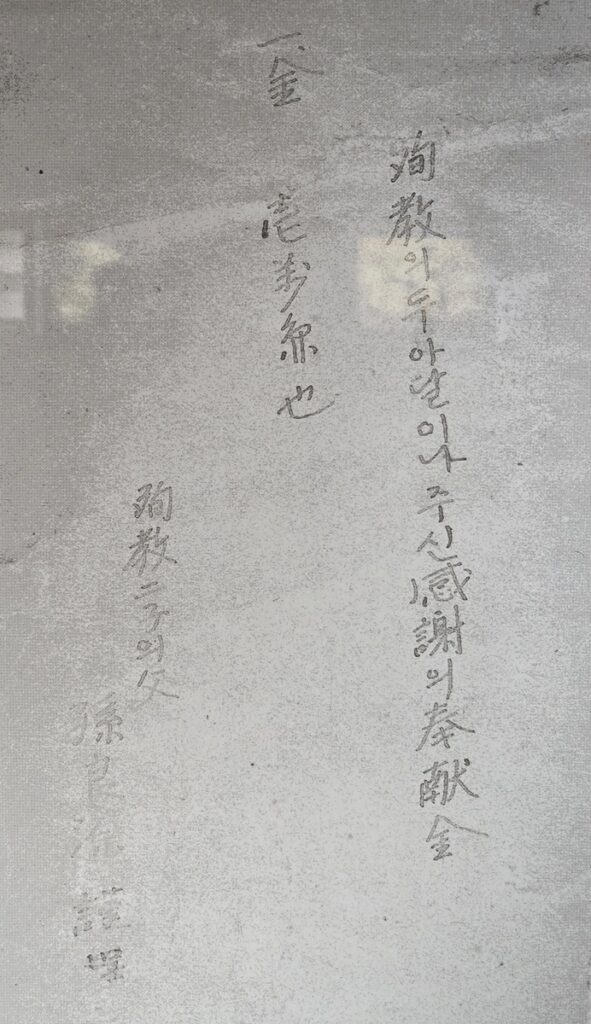 殉教의두아달이나주신感謝의奉献金
一金 壱萬원也
殉教二子의父
孫良源 謹呈